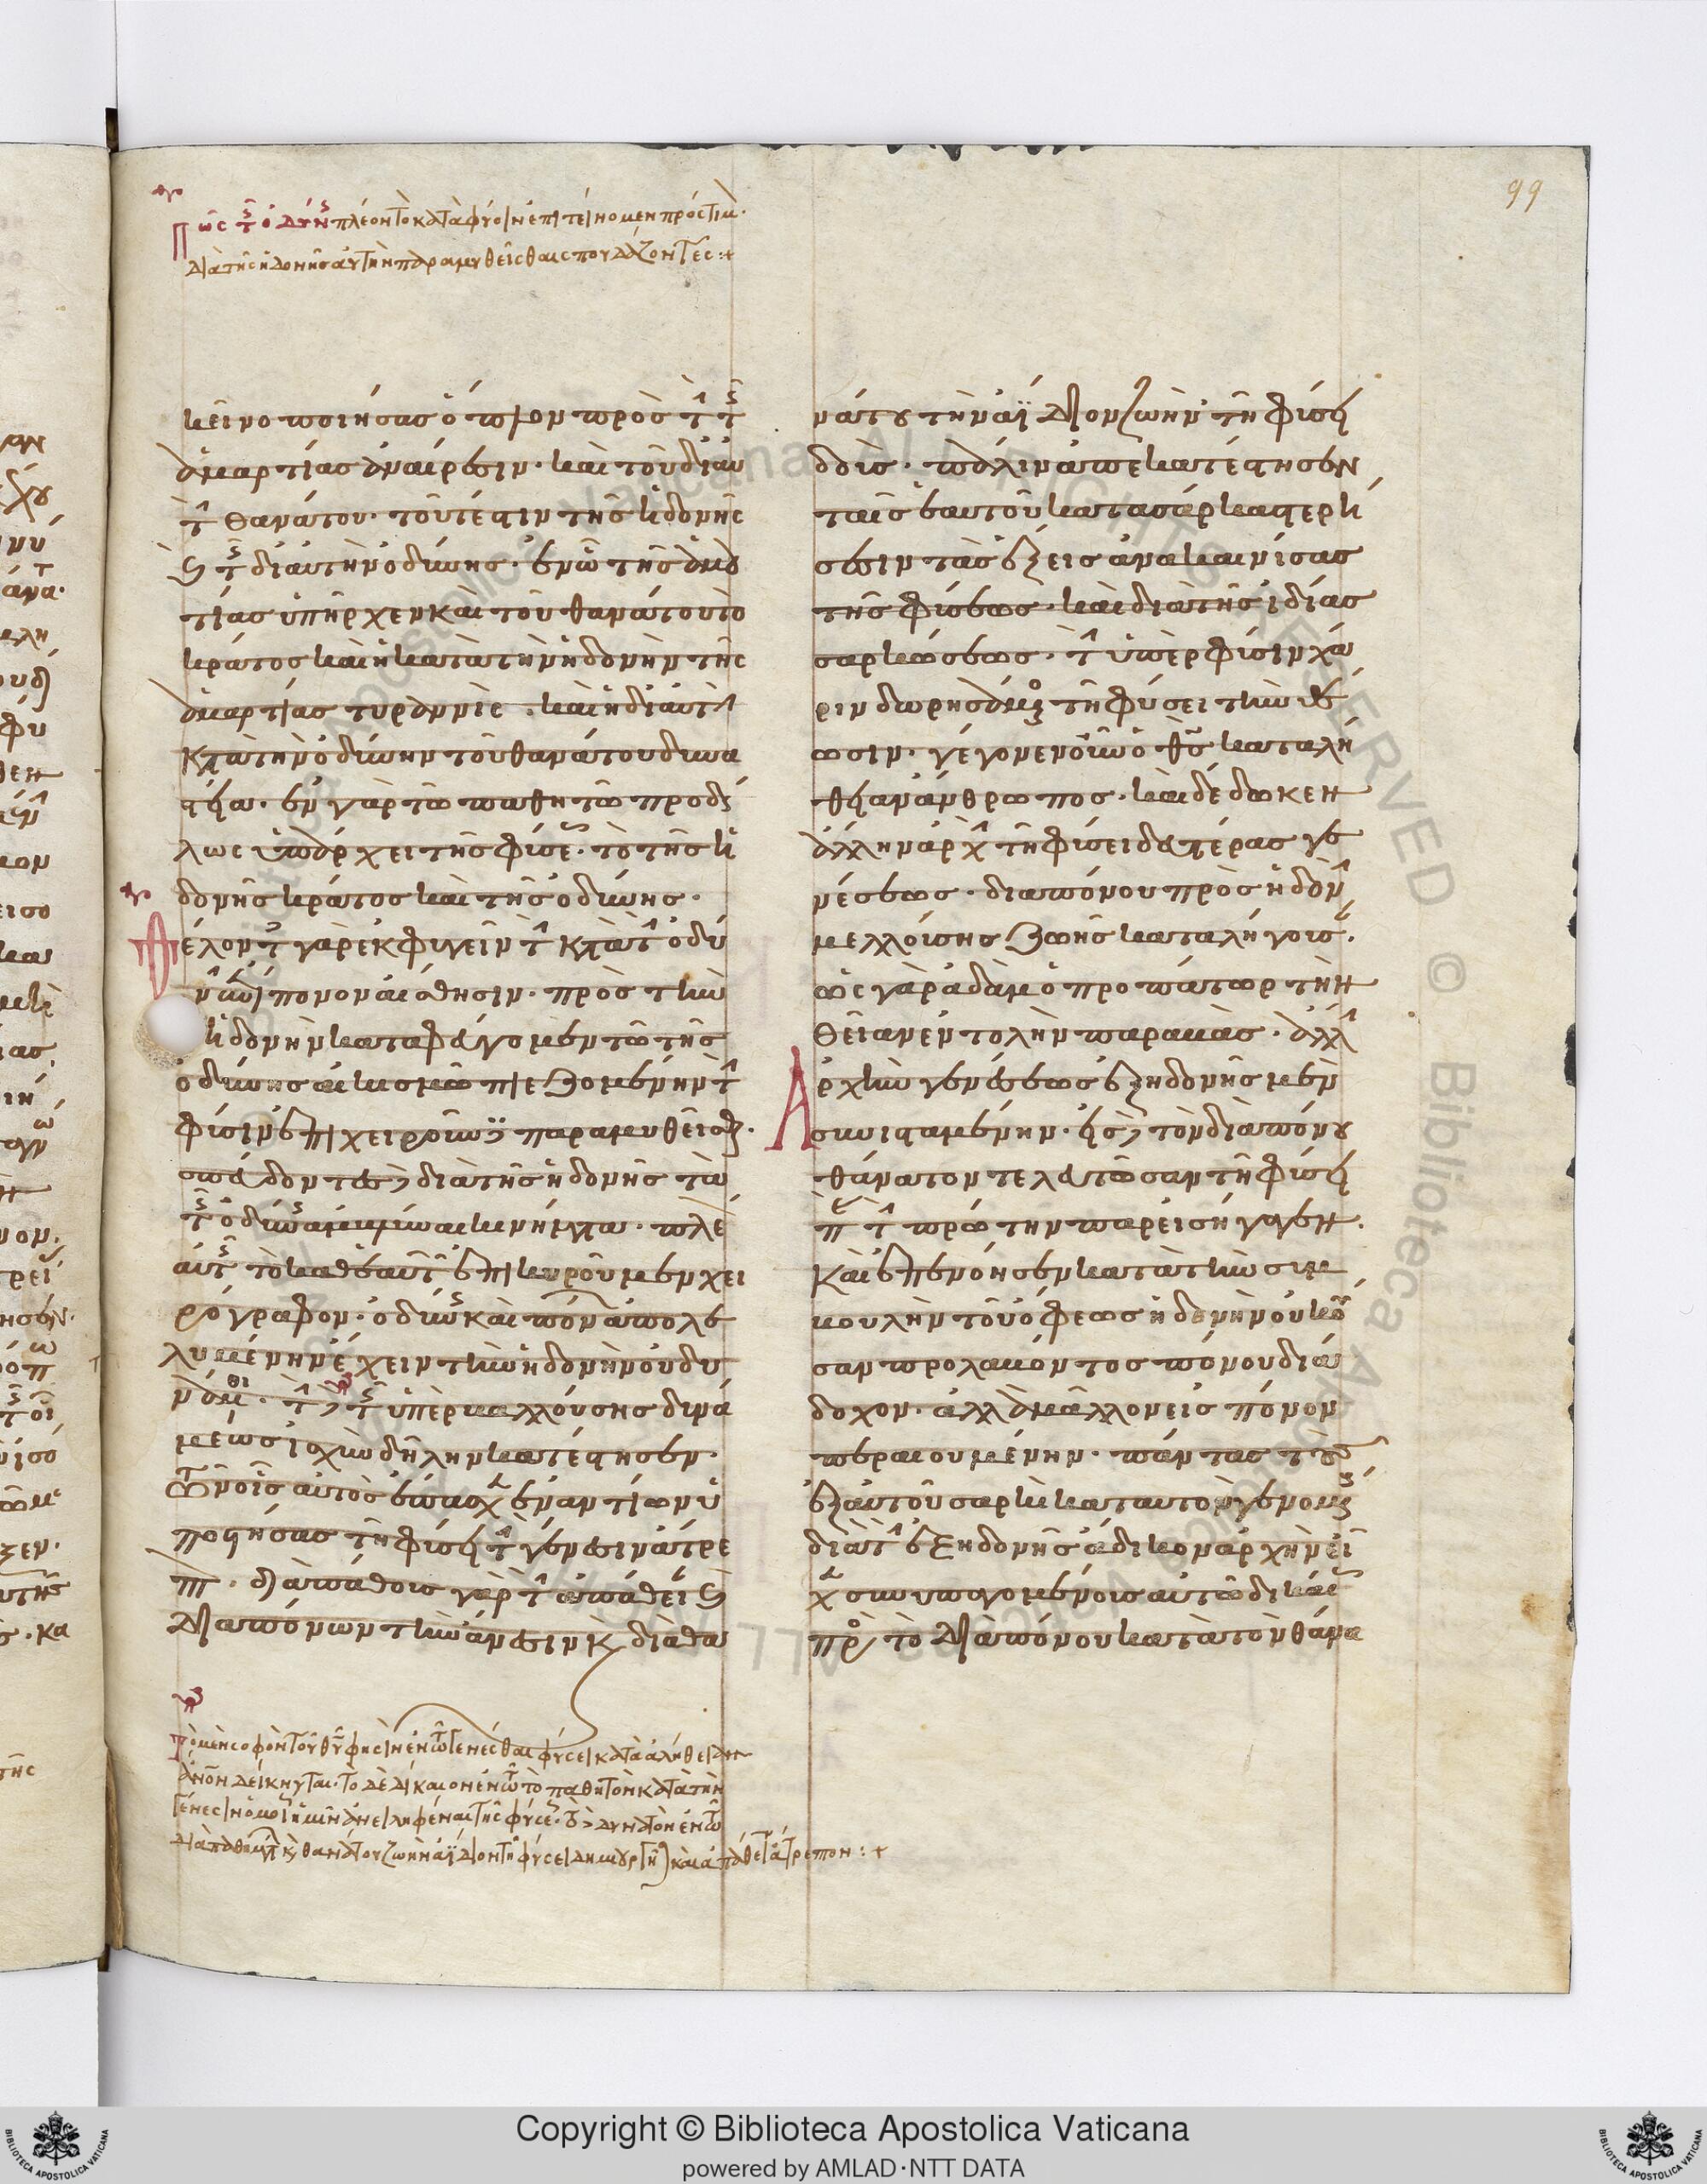 Πῶς τῆς ὀδύνης πλέον τὸ κατὰ φύσιν ἐπιτείνομεν πρόστιμον·
διὰ τῆς ἡδονῆς αὐτὴν παραμυθεῖσθαι σπουδάζοντες:+
κεῖνο ποιήσας ὅπλον πρὸς τὴν τῆς
ἁμαρτίας ἀναίρεσιν· καὶ τοῦ δι' αὐ
τὴν θανάτου· τουτέστιν τῆς ἡδονῆς
καὶ τῆς δι' αὐτὴν ὀδύνης· ἐν ᾧ τῆς ἁμαρ
τίας ὑπῆρχεν καὶ τοῦ θανάτου τὸ
κράτος καὶ ἡ κατὰ τὴν ἡδονὴν τῆς
ἁμαρτίας τυραννὶς· καὶ ἡ δι' αὐτὴν
κατὰ τὴν ὀδύνην τοῦ θανάτου δυνα
στεία· ἐν γὰρ τῷ παθητῷ προδή
λως ὑπάρχει τῆς φύσεως· τὸ τῆς ἡ
δονῆς κράτος καὶ τῆς ὀδύνης·
Θέλοντες γὰρ ἐκφυγεῖν τὴν κατὰ τὴν ὀδύ
νην ἐπίπονον αἴσθησιν· πρὸς τὴν
ἡδονὴν καταφεύγομεν τῷ τῆς
ὀδύνης αἰκισμῷ πιεζομένην τὴν
φύσιν ἐπιχειροῦντες παραμυθεῖσθαι·
σπεύδοντες δὲ διὰ τῆς ἡδονῆς τὰ
τῆς ὀδύνης ἀμβλύναι κινήματα· πλέον
αὐτῆς τὸ καθ' ἑαυτῶν ἐπικυροῦμεν χει
ρόγραφον· ὀδύνης καὶ πόνων ἀπολε
λυμένην ἔχειν τὴν ἡδονὴν οὐ δυ
νάμενοι· τὴν δὲ τῆς ὑπερβαλλούσης δυνά
μεως ἰσχὺν δήλην κατέστησεν·
τῶν οἷς αὐτὸς ἔπασχεν ἐναντίων ὑ
ποστήσας τῇ φύσει τὴν γένεσιν ἄτρε
πτον· διὰ πάθους γὰρ τὴν ἀπάθειαν καὶ
διὰ πόνων τὴν ἄνεσιν καὶ διὰ θα
νάτου τὴν ἀΐδιον ζωὴν τῇ φύσει
δοὺς· πάλιν ἀπεκατέστησεν
ταῖς ἑαυτοῦ κατὰ σάρκα στερή
σεσιν τὰς ἕξεις ἀνακαινίσας
τῆς φύσεως· καὶ διὰ τῆς ἰδίας
σαρκώσεως· τὴν ὑπὲρ φύσιν χά
ριν δωρησάμενος τῇ φύσει τὴν θέ
ωσιν· γέγονεν οὖν ὁ θς κατ' ἀλή
θειαν ἄνθρωπος· καὶ δέδωκεν
ἄλλην ἀρχὴν τῇ φύσει δευτέρας γε
νέσεως· διὰ πόνου πρὸς ἡδονὴν
μελλούσης ζωῆς καταλήγουσαν·
ὡς γὰρ ἀδὰμ ὁ προπάτωρ τὴν
θείαν ἐντολὴν παραβὰς· ἄλλην
Ἀρχὴν γενέσεως ἐξ ἡδονῆς μὲν
συνισταμένην· εἰς δὲ τὸν διὰ πόνου
θάνατον τελευτῶσαν τῇ φύσει
παρὰ τὴν πρώτην παρεισήγαγεν·
καὶ ἐπενόησεν κατὰ τὴν συμ
βουλὴν τοῦ ὄφεως ἡδονὴν οὐκ οὖ
σαν προλαβόντος πόνου διά
δοχον· ἀλλὰ μᾶλλον εἰς πόνον
περαιουμένην· πάντας τοὺς
ἐξ αὐτοῦ σαρκὶ κατ' αὐτὸν γενομένους
διὰ τὴν ἐξ ἡδονῆς ἄδικον ἀρχὴν εἶ
χεν συνυπαγομένους αὐτῷ δικαίως
πρὸς τὸ διὰ πόνου κατὰ τὸν θάνα
Τὸ μὲν σοφὸν τοῦ θυ φησὶν ἐν τῷ γενέσθαι φύσει κατὰ ἀλήθειαν
ἄνον δείκνυται· τὸ δὲ δίκαιον ἐν τῷ τὸ παθητὸν κατὰ τὴν
γένεσιν ὁμοίως ἡμῖν ἀνειληφέναι τῆς φύσεως· τὸ δὲ δυνατὸν ἐν τῷ
διὰ παθημάτων καὶ θανάτου ζωὴν ἀΐδιον τῇ φύσει δημιουργῆσαι καὶ ἀπάθειαν ἄτρεπτον:+
99
Copyright © Biblioteca Apostolica Vaticana
powered by AMLAD·NTT DATA